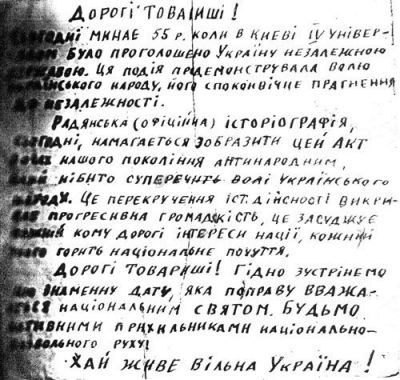 Дорогі товариші!
Сьогодні минає 55 р. коли в Києві IV універ-
салом було проголошено Україну незалежною
державою. Ця подія продемонструвала волю
українського народу, його споконвічне прагнення
до незалежності.
Радянська (офіційна) історіографія,
сьогодні, намагається зобразити цей акт
очах нашого покоління антинародним,
нібито суперечить волі українського
народу. Це перекручення іст. дійсності викри-
ває прогресивна громадкість, це засуджує
кожний кому дорогі інтереси нації, кожний
кого горить національне почуття.
Дорогі товариші! Гідно зустрінемо
цю знаменну дату, яка поправу вважа-
ється національним святом. Будьмо
активними прихильниками національно-
визвольного руху!
Хай живе вільна Україна!